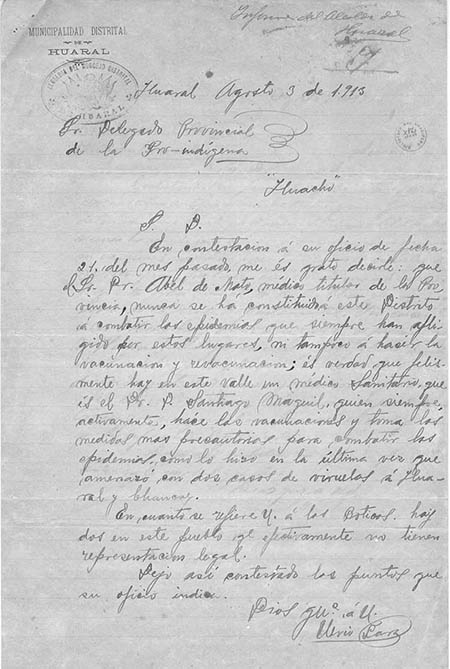 MUNICIPALIDAD DISTRITAL
DE
HUARAL
Informe del Alcalde de
Huaral
Huaral Agosto 3 de 1.913
Sr. Delegado Provincial
de la Pro-indígena
"Huacho"
S. D.
En contestacion á su oficio de fecha
21. del mes pasado, me és grato decirle: que
el Sr. Dr. Abel de Mato, médico titular de la Pro-
vincia, nunca se há constituido á este Distrito
á combatir las epidemias que siempre han afli-
gido por estos lugares, ni tampoco á hacer la
vacunacion y revacunacion; és verdad que feliz-
mente hay en este valle un médico Sanitario, que
és el Dr. D. Santiago quien siempre,
activamente, hace las vacunaciones y toma las
medidas mas precautorias para combatir las
epidemias, como lo hizo en la última vez que
amenazó con dos casos de viruelas á Hua-
ral y Chancay.
En cuanto se refiere U. á las Boticas. hay
dos en este pueblo qe efectivamente no tienen
representacion legal.
Dejo así contestado los puntos que
su oficio indica.
Dios gue. á U.